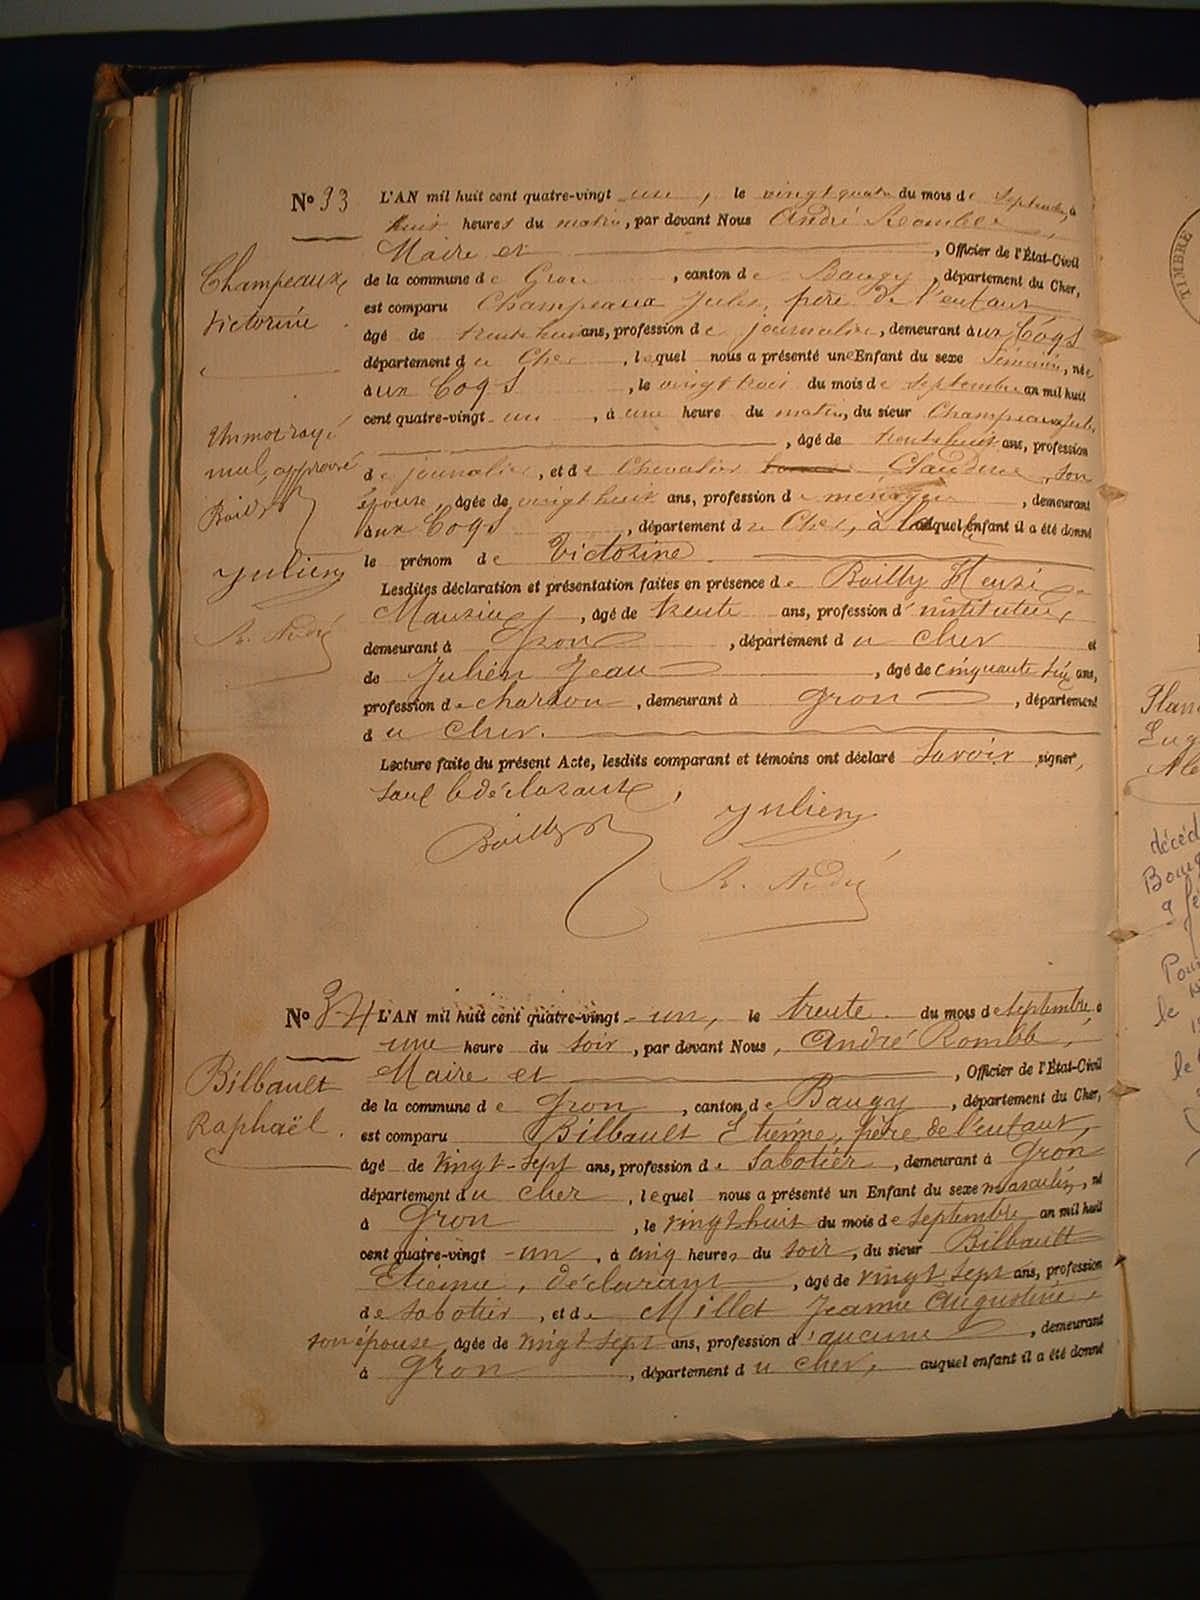 N° 33 L'AN mil huit cent quatre-vingt un, le vingt quatre du mois de Septembre, à
huit heures du matin, par devant Nous André Romble
Maire et , Officier de l'État-Civil
Champeaux
Victorine
de la commune de Gron , canton de Baugy , département du Cher,
est comparu Champeaux Jules, père de l'enfant
âgé de trente huit ans, profession de journalier, demeurant aux Cogs
département du Cher , lequel nous a présenté une Enfant du sexe féminin, née
aux Cogs , le vingt trois du mois de septembre an mil huit
cent quatre-vingt un , à une heure du matin, du sieur Champeaux Jules
, âgé de trente huit ans, profession
Un mot rayé
nul, approuvé
Bailly
Julien
R. André
de journalier, et de Chevalier Claudine, son
épouse, âgée de vingt huit ans, profession de ménagère , demeurant
aux Cogs , département du Cher, à laquel enfant il a été donné
le prénom de Victorine
Lesdites déclaration et présentation faites en présence de Bailly Henri
Maurice , âgé de trente ans, profession d'instituteur,
demeurant à Gron , département du cher et
de Julien Jean , âgé de cinquante six ans,
profession de charron , demeurant à Gron , département
du cher.
Lecture faite du présent Acte, lesdits comparant et témoins ont déclaré savoir signer,
sauf le déclarant,
Bailly Julien
R. André
N° 34 L'AN mil huit cent quatre-vingt-un, le trente du mois de septembre à
une heure du soir, par devant Nous, André Romble,
Maire et , Officier de l'État-Civil
Bilbault
Raphaël.
de la commune de Gron , canton de Baugy , département du Cher,
est comparu Bilbault Etienne, père de l'enfant,
âgé de vingt-sept ans, profession de sabotier , demeurant à Gron
département du cher , lequel nous a présenté un Enfant du sexe masculin, né
à Gron , le vingt huit du mois de septembre an mil huit
cent quatre-vingt-un , à cinq heures du soir, du sieur Bilbault
Etienne, déclarant , âgé de vingt sept ans, profession
de sabotier , et de Millet Jeanne Augustine,
son épouse, âgée de vingt sept ans, profession d'aucune , demeurant
à Gron , département du cher, auquel enfant il a été donné
TIMBRE
décéd
le
le